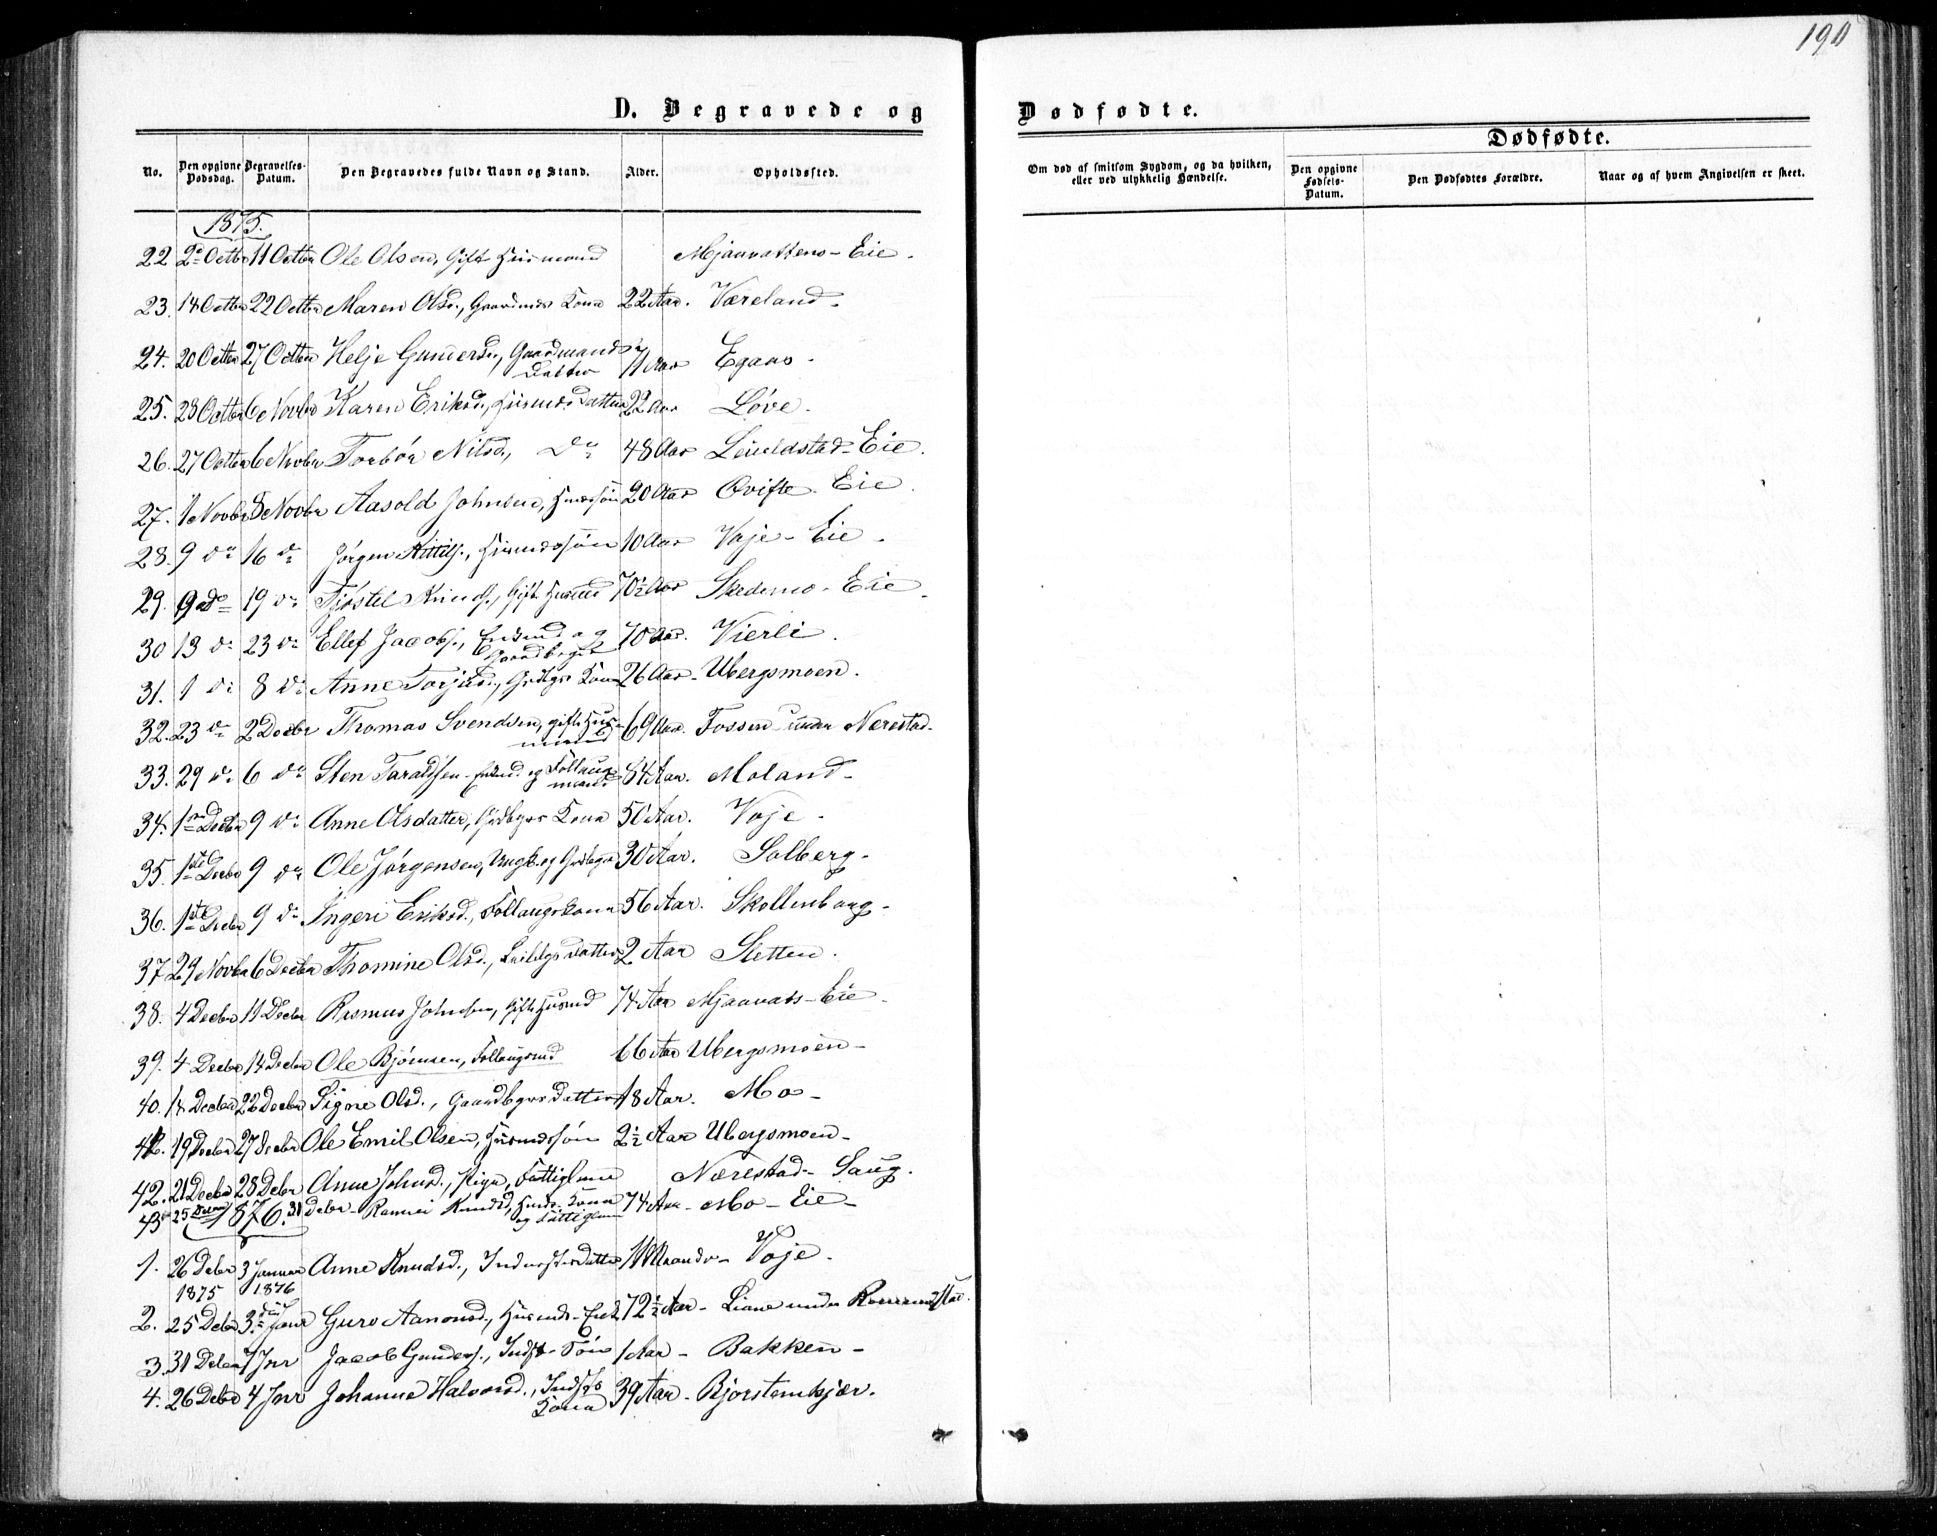 190
D. Begravede og Dødfødte.
Dødfødte.
No. Den opgivne Dødsdag. Begravelses-Datum. Den Begravedes fulde Navn og Stand. Alder. Opholdssted. Om død af smitsom Sygdom, og da hvilken, eller ved ulykkelig Hændelse. Den opgivne Fødsels-Datum. Den Dødfødtes Forældre. Naar og af hvem Angivelsen er skeet.
1875.
22 2 Octbr 11 Octbr Ole Olsen, Gift Husmand Mjaavattens-Eie.
23. 14 Octbr 22 Octbr Maren Olsd., Gaardmds Kona 22 Aar. Væreland.
24. 20 Octbr 27 Octbr Helje Gundersd., Gaardmands Datter Aar Egaas.
25. 23 Octbr 6 Novbr Karen Eriksd., Husmds Datter 22 Aar Løve.
26. 27 Octbr 6 Novbr Torbør Nilsd., do 48 Aar Eie.
27. 1 Novbr 8 Novbr Aasold Johnsen, 20 Aar Øvifte Eie.
28. 9 do 16 do Jørgen Kittils., Husmdssøn 10 Aar Vaje-Eie.
29. 9 do 19 do Tjøstel Knuds., Gift Husmd 70½ Aar Skedemo-Eie.
30 13 do 23 do Ellef Jacobs., Enkemd og Gaardbruger 70 Aar. Vierli.
31. 1 do 8 do Anne Torjusd., Kona 26 Aar. Ubergsmoen.
32. 23 do 2 Decbr Thomas Svendsen, gift Husmand 69 Aar. Fossen under Nerestad.
33. 29 do 6 do Sten Taraldsen Enkmd og Follaugsmand 84 Aar. Moland.
34. 1 Decbr 9 do Anne Olsdatter, Grdbgrs Kona 50 Aar. Voje.
35. 1ste Decbr 9 do Ole Jørgensen, Ungk. og 30 Aar. Solberg.
36. 1ste Decbr 9 do Ingeri Eriksd., Follaugskona 56 Aar. Skollenborg.
37 29 Novbr 6 Decbr Thomine Olsd., Datter 2 Aar Sletten.
38. 4 Decbr 11 Decbr Rasmus Johnsen, Gift Husmd 74 Aar Mjaavats-Eie.
39. 4 Decbr 14 Decbr Ole Bjørnsen, Follaugsmd 66 Aar Ubergsmoen.
40. 14 Decbr 22 Decbr Signe Olsd., Gaardbgrs Datter 18 Aar. Mo.
41. 19 Decbr 27 Decbr Ole Emil Olsen, Husmdssøn 2½ Aar Ubergsmoen.
42. 21 Decbr 28 Debr Anne Johnsd., Pige, Fattiglem Nærestad-Saug.
43 25 Decbr 31 Debr Knudsd, Husmds Kona og Fattiglem 74 Aar. Mo-Eie.
1876.
1. 26 Debr 1875 3 Januar 1876 Anne Knudsd., Inderstes Datter Maander Voje.
2. 25 Debr 3die Janr Guro Aanonsd., Husmds-Enke 72½ Aar. Liane under
3. 31 Debr 7 Jnr Jacob Gunders., Indst. Søn 1 Aar Bakken
4. 26 Debr 4 Jnr Johanne Halvorsd., Indsts Kona 39 Aar. Bjorstemkjær.